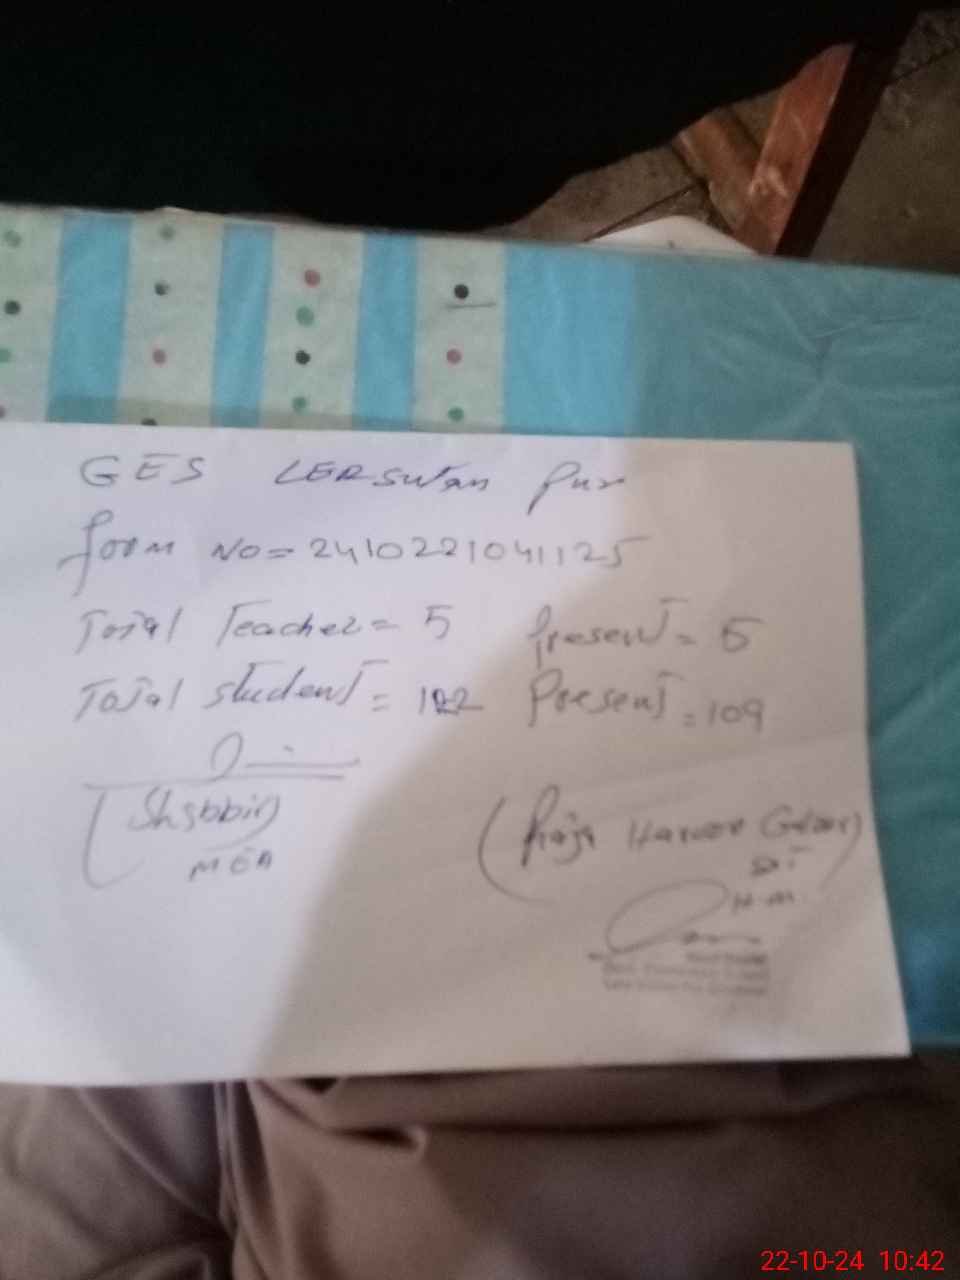 GES LERSULTAN PUR
form NO = 2410221041125
Total Teacher = 5 Present = 5
Total student = 122 Present = 109
(Shabbir)
MEA
(Raja Haroon
H.M.
22-10-24 10:42